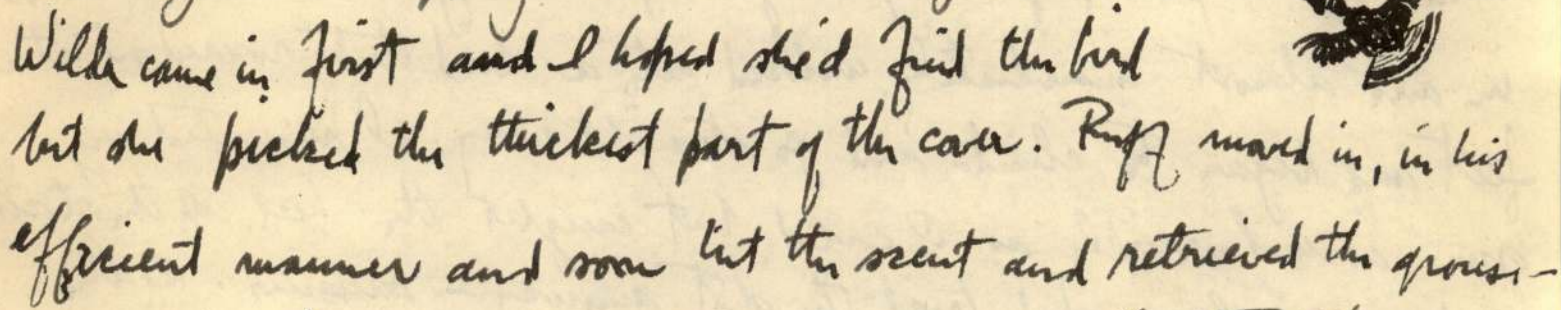 Wilda came in first and I hoped she'd find the bird
but she picked the thickest part of the cover. Ruff moved in, in his
efficient manner and soon hit the scent and retrieved the grouse-